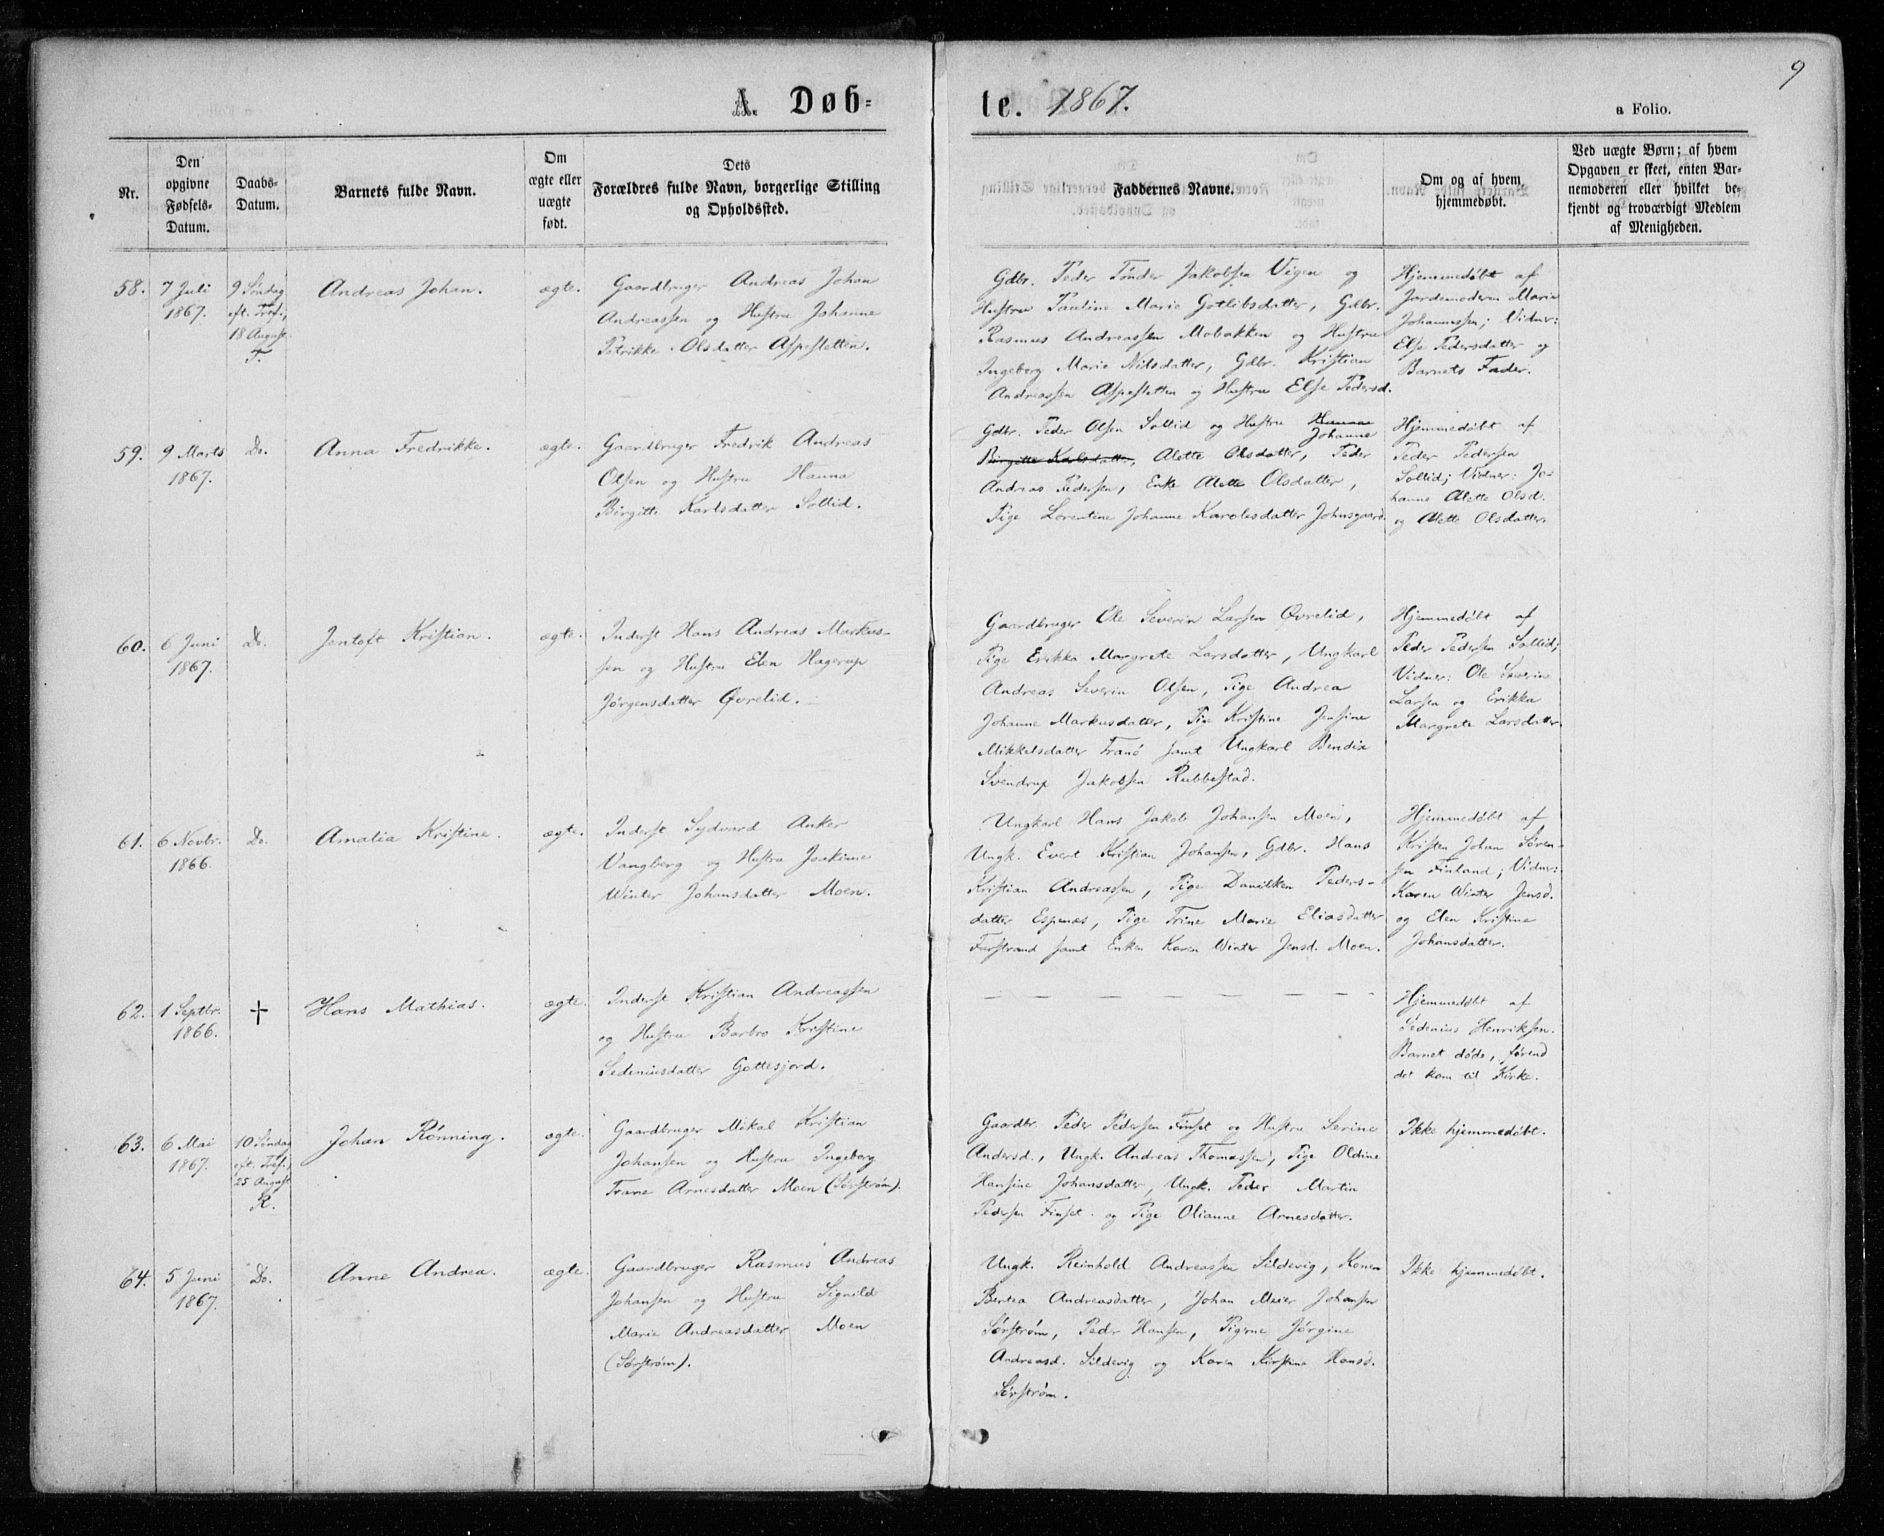 9
A. Døb=
te. 1867.
a Folio.
Nr.
Den
opgivne
Fødsels-
Datum.
Daabs-
Datum.
Barnets fulde Navn.
Om
ægte eller
uægte
født.
Dets
Forældres fulde Navn, borgerlige Stilling
og Opholdssted.
Faddernes Navne.
Om og af hvem
hjemmedøbt.
Ved uægte Børn; af hvem
Opgaven er skeet, enten Bar-
nemoderen eller hvilket be-
kjendt og troværdigt Medlem
af Menigheden.
58.
7 Juli
1867.
9 Søndag
eft. Tref.,
18 August.
T.
Andreas Johan.
ægte.
Gaardbruger Andreas Johan
Andreassen og Hustru Johanne
Petrikke Olsdatter Aspesletten.
Gdbr. Peder Tønder Jakobsen Vigen og
Hustru Pauline Marie Gotlibsdatter, Gdbr.
Rasmus Andreassen Mobakken og Hustru
Ingeborg Marie Nilsdatter, Gdbr. Kristian
Andreassen Aspesletten og Hustru Else Pedersd.
Hjemmedøbt af
Jordemoderen Marie
Johannessen; Vidner:
Else Pedersdatter og
Barnets Fader.
59.
9 Marts
1867.
Do.
Anna Fredrikke.
ægte.
Gaardbruger Fredrik Andreas
Olsen og Hustru Hanna
Birgitte Karlsdatter Sollid.
Gdbr. Peder Olsen Sollid og Hustru Hanna
Johanne
Birgitte Karlsdatter, Alette Olsdatter, Peder
Andreas Pedersen, Enke Alette Olsdatter,
Pige Lorentine Johanne Karolesdatter Johnsgaard.
Hjemmedøbt af
Peder Pedersen
Sollid; Vidner: Jo-
hanne Alette Olsd.
og Alette Olsdatter.
60.
6 Juni
1867.
Do.
Jentoft Kristian.
ægte.
Inderst Hans Andreas Markus-
sen og Hustru Elen Hagerup
Jørgensdatter Øvrelid.
Gaardbruger Ole Severin Larsen Øvrelid,
Pige Erikka Margrete Larsdatter, Ungkarl
Andreas Severin Olsen, Pige Andrea
Johanne Markusdatter, Pige Kristine Jensine
Mikkelsdatter Tranø samt Ungkarl Bendix
Svendrup Jakobsen Rubbestad.
Hjemmedøbt af
Peder Pedersen Sollid;
Vidner: Ole Severine
Larsen og Erikka
Margrete Larsdatter.
61.
6 Novbr.
1866.
Do.
Amalia Kristine.
ægte.
Inderst Sydvard Anker
Vangberg og Hustru Joakime
Winter Johansdatter Moen.
Ungkarl Hans Jakob Johansen Moen,
Ungk. Evert Kristian Johansen, Gdbr. Hans
Kristian Andreassen, Pige Danilken Peders-
datter Espenæs, Pige Trine Marie Eliasdatter
Forstrand samt Enken Karen Winter Jensd. Moen.
Hjemmedøbt af
Kristen Johan Søren-
sen Finland; Vidner:
Karen Winter Jensd.
og Elen Kristine
Johansdatter.
62.
1 Septbr.
1866.
†
Hans Mathias.
ægte.
Inderst Kristian Andreassen
og Hustru Barbro Kristine
Sedeniusdatter Gottesjord.
— — — — — — — —
Hjemmedøbt af
Sedenius Henriksen.
Barnet døde, førend
det kom til Kirke.
63.
6 Mai
1867.
10 Søndag
eft. Tref.,
25 August
R.
Johan Rønning.
ægte.
Gaardbruger Mikal Kristian
Johansen og Hustru Ingeborg
Trane Arnesdatter Moen (Sørstrøm).
Gaardbr. Peder Pedersen Finset og Hustru Serine
Andersd., Ungk. Andreas Thomassen, Pige Oldine
Hansine Johansdatter, Ungk. Peder Martin
Pedersen Finset og Pige Olianne Arnesdatter.
Ikke hjemmedøbt.
64.
5 Juni
1867.
Do.
Anne Andrea.
ægte.
Gaardbruger Rasmus Andreas
Johansen og Hustru Signild
Marie Andreasdatter Moen
(Sørstrøm).
Ungk. Reinhold Andreassen Sildevig, Konen
Bertea Andreasdatter, Johan Meier Johansen
Sørstrøm, Peder Hansen, Pigerne Jørgine
Andreasd. Sildevig og Karen Kirstine Hansd.
Sørstrøm.
Ikke hjemmedøbt.